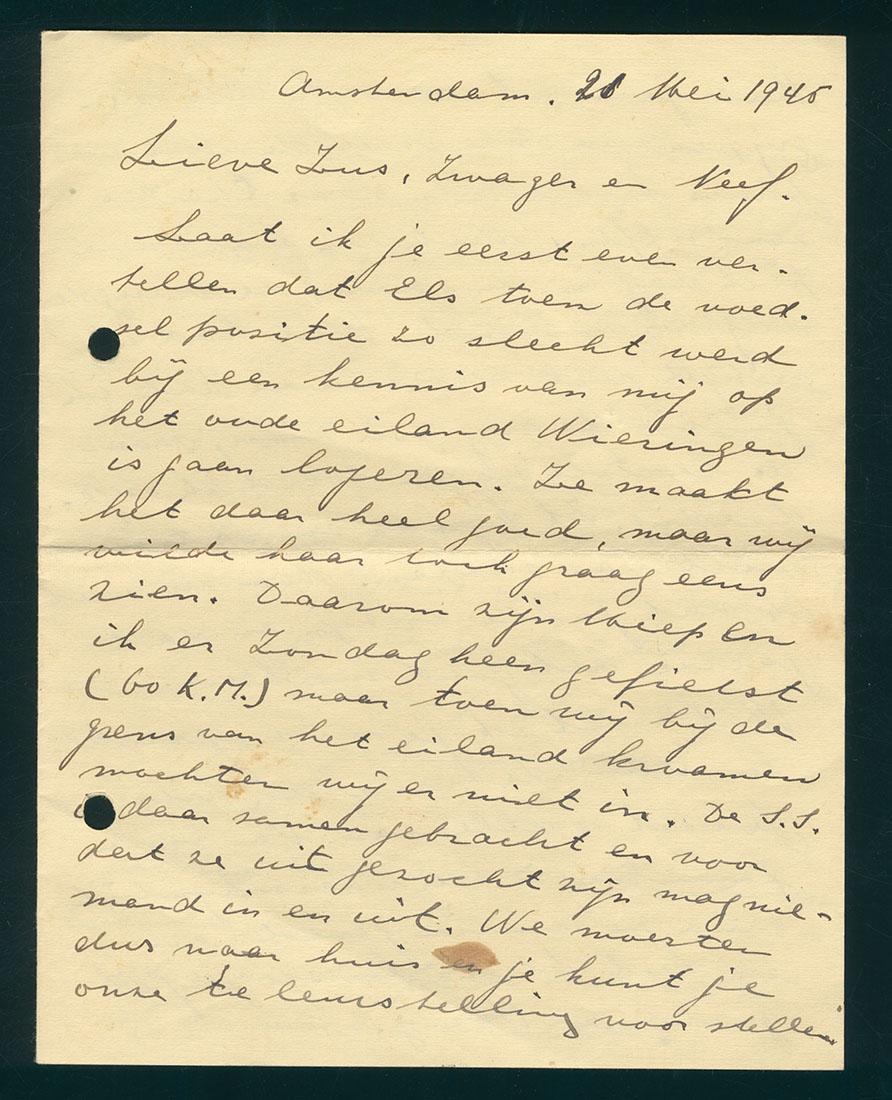 Amsterdam. 21 Mei 1945
Lieve Zus, Zwager en Neef.
Laat ik je eerst even ver-
tellen dat Els toen de voed-
sel positie zo slecht werd
bij een kennis van mij op
het oude eiland Wieringen
is gaan logeren. Ze maakt
het daar heel goed, maar wij
wilde haar toch graag eens
zien. Daarom zijn Miep en
ik er Zondag heen gefietst
(60 K.M.) maar toen wij bij de
grens van het eiland kwamen
mochten wij er niet in. De S.S.
daar samen gebracht en voor
dat ze uit gezocht zijn mag nie-
mand in en uit. We moesten
dus naar huis en je kunt je
onze te leurstelling voor stellen